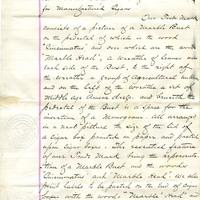 for Manufactured Cigars
Our Trade Mark
consists of a picture of a Marble Bust
on the pedestal of which is the word
"Cincinnatus" and over which are the words
"Marble Head", a wreath of leaves on
each side of the Bust, of the right of
the wreath a group of Agricultural tools
and on the left of the wreath a set of
middle age Armor &c. and beneath the
pedestal of the Bust is a space for the
insertion of a Monogram. All arranged
in a neat picture the size of the lid of
a cigar box printed on paper and pasted
upon cigar boxes. The essential feature
of our Trade Mark being the representa-
tion of a Marble Bust and the words
"Cincinnatus" and "Marble Head". We also
print labels to be pasted on the end of cigar
boxes with the words "Marble Head" and